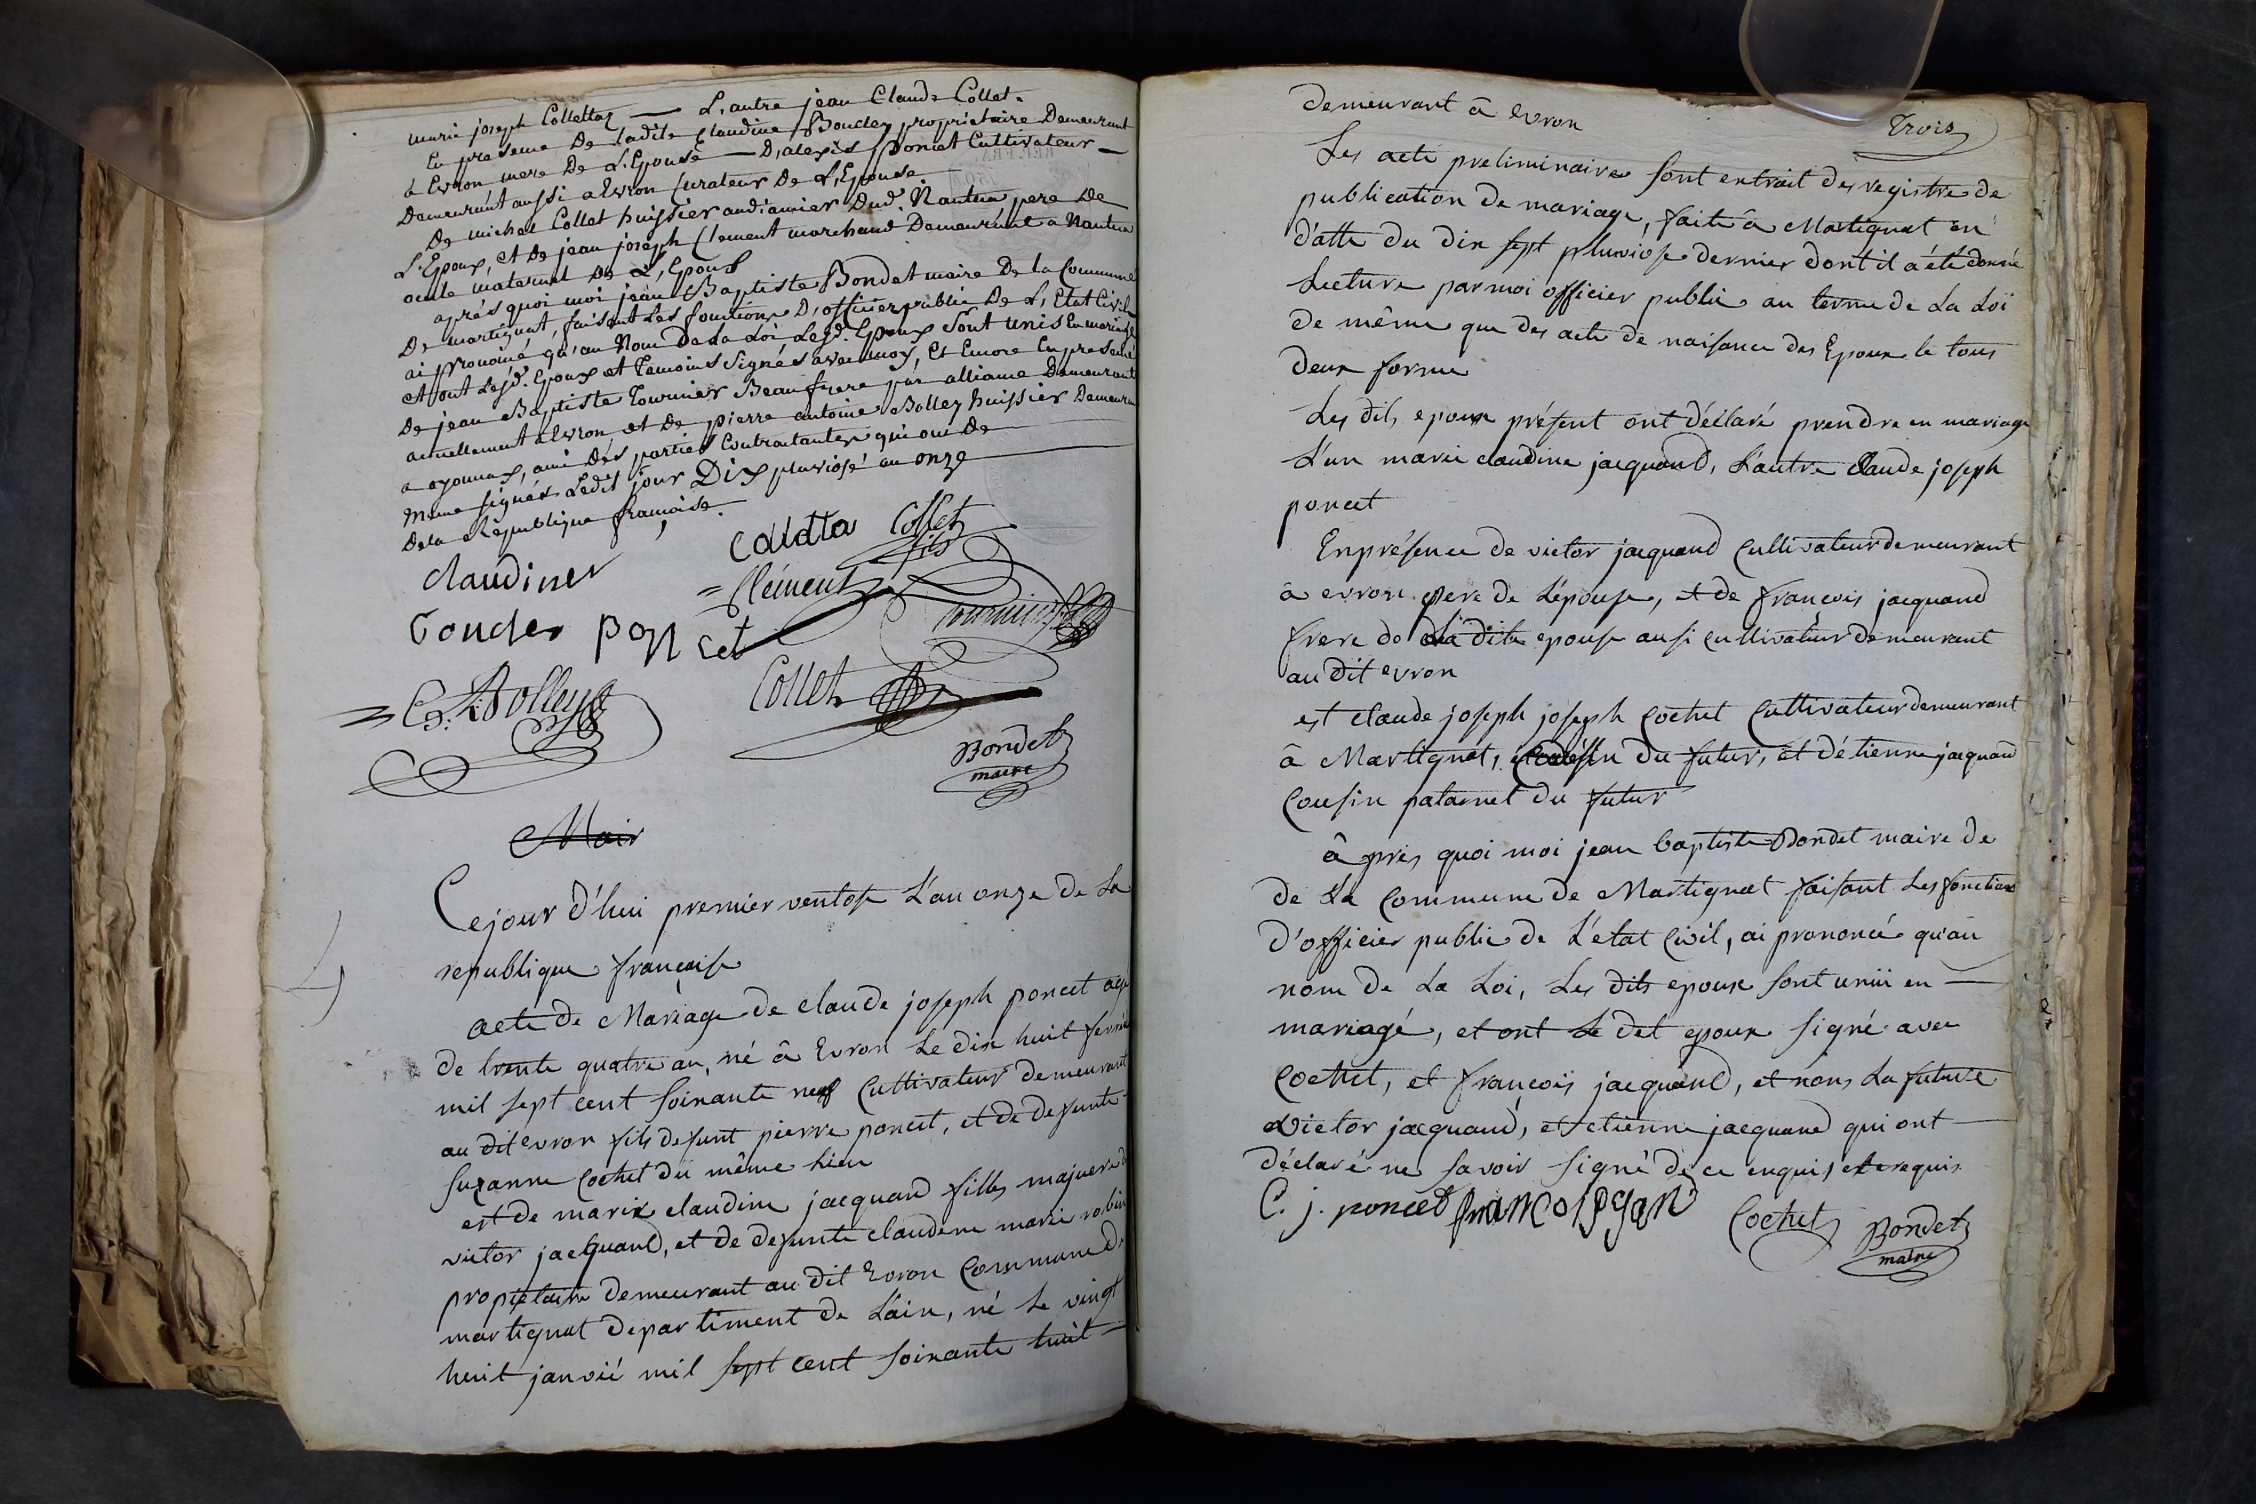 marie joseph Collettaz — L'autre jean Claude Collet.
En presense De ladite Claudine Bouclez propriétaire Demeurant
à Evron mere De L'Epouse — D'alexis Poncet Cultivateur —
Demeurént aussi a Evron Curateur De L'Epouse
De michel Collet huissier audiansier Dud. Nantua pere De
L'Epoux, et De jean joseph Clement marchand Demeurént a Nantua
oncle maternel De L'Epous
aprés quoi moi jean Baptiste Bondet maire De la Commune
De martignat, faisant Les fonctions D'officier public De L'Etat Civile
ai prronomé qu'au Nom De La Loi Lesd. Epoux sont unis En mariage
et ont Lesd. Epoux et Temoins Signés avec moy, Et Encore En presense
De jean Baptiste Tournier Beau frere pär alliance Demeurant
actuellement a Evron, et De pierre antoine Bolley huissier Demeurant
a oyonnax, ami Des parties Contractantes qui ont De
même signés Ledit jour Dix pluviose an onze
De la République francaise.
Colletta Collet
fils
Claudiner
Clément
Tournier
Boucler poncet
P. A. Bolley
Collet
Bondet
maire
Mair
Cejour d'hui premier ventose L'an onze de La
republique francaise
acte de Mariage de claude joseph poncet agé
de trente quatre an, né â Evron Le dix huit fevrié
mil sept cent soixante neuf Cultivateur demeurant
au dit evron fils defunt pierre poncet, et de defunte
suzanne Cochet du même lieu
est de marie claudine jacquand filles majuere de
victor jacquand, et de defunte claudine marie robin
propietaire demeurant au dit Evron Commune de
martignat departement de L'ain, né Le vingt
huit janvié mil sept cent soixante huit —
demeurant â evron
Trois
Les acte preliminaire sont extrait des registre de
publication de mariage, faite â Martignat en
d'atte du dix sept pluviose dernier dont il a été donné
Lecture par moi officier public au terme de La Loi
de même que des acte de naisance des Epoux le tous
deux forme
Les dits epoux présent ont déclaré prendre en mariage
L'un marie claudine jacquand, L'autre Claude joseph
poncet
En présence de victor jacquand cultivateur demeurant
â evron pere de L'epouse, et de françois jacquand
frere de La dite epouse ausi cultivateur demeurant
au dit evron
est claude joseph joseph Cochet Cultivateur demeurant
â Martignat, Cousin du futur, et d'étienne jacquand
Cousin paternel du futur
â pres quoi moi jean baptiste Bondet maire de
de La Commune de Martignat faisant Les fonctions
d'officier public de L'etat Civil, ai prononcé qu'au
nom de La Loi, Les dits epoux sont unii en —
mariagé, et ont Le det epoux signé avec
Cochet, et françois jacquand, et non, La future
victor jacquand, et etienne jacquand qui ont —
déclaré ne savoir signé de ce enquis et requis
C. j. poncet francois jgand Cochet Bondet
maire